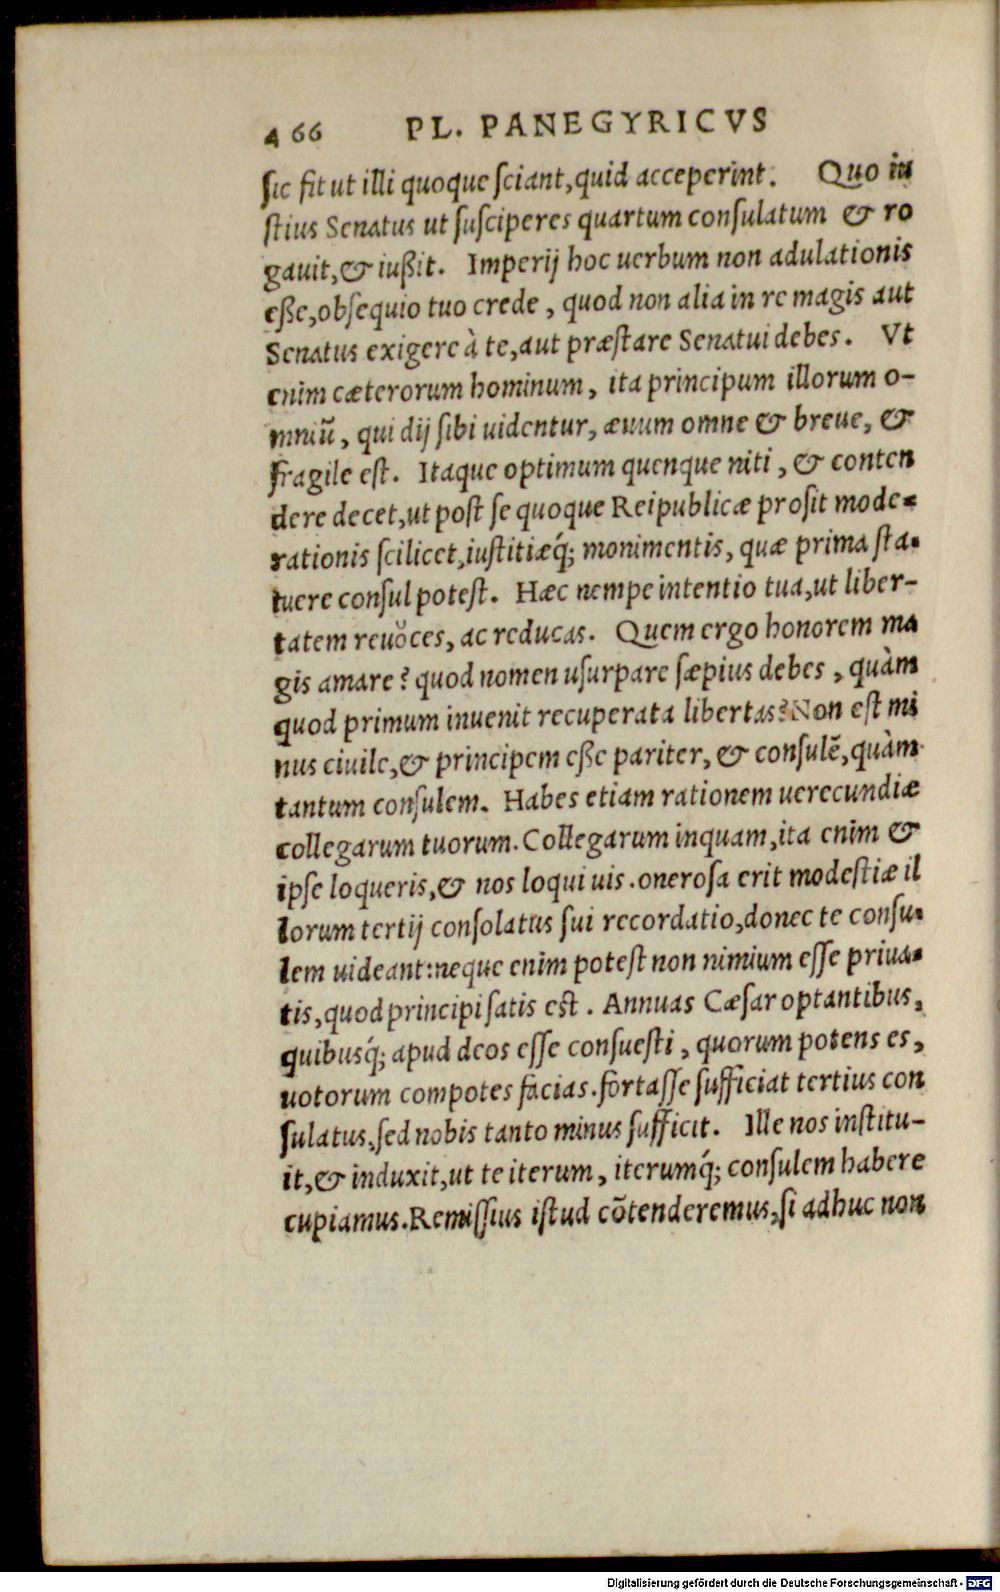 466 PL. PANEGYRICVS
ſic fit ut illi quoque ſciant, quid acceperint. Quo iu
ſtius Senatus ut ſuſciperes quartum conſulatum & ro
gauit, & iußit. Imperij hoc uerbum non adulationis
eße, obſequio tuo crede, quod non alia in re magis aut
Senatus exigere à te, aut præſtare Senatui debes. Vt
enim cæterorum hominum, ita principum illorum o-
mniũ, qui dij ſibi uidentur, æuum omne & breue, &
fragile eſt. Itaque optimum quenque niti, & conten
dere decet, ut poſt ſe quoque Reipublicæ proſit mode-
rationis ſcilicet, iuſtitiæq́; monimentis, quæ prima ſta-
tuere conſul poteſt. Hæc nempe intentio tua, ut liber-
tatem reuoces, ac reducas. Quem ergo honorem ma
gis amare? quod nomen uſurpare ſæpius debes, quàm
quod primum inuenit recuperata libertas? Non eſt mi
nus ciuile, & principem eße pariter, & conſulẽ, quàm
tantum conſulem. Habes etiam rationem uerecundiæ
collegarum tuorum. Collegarum inquam, ita enim &
ipſe loqueris, & nos loqui uis. oneroſa erit modeſtiæ il
lorum tertij conſolatus ſui recordatio, donec te conſu-
lem uideant: neque enim poteſt non nimium eſſe priua-
tis, quod principi ſatis eſt. Annuas Cæſar optantibus,
quibusq́; apud deos eſſe conſueſti, quorum potens es,
uotorum compotes facias. fortaſſe ſufficiat tertius con
ſulatus, ſed nobis tanto minus ſufficit. Ille nos inſtitu-
it, & induxit, ut te iterum, iterumq́; conſulem habere
cupiamus. Remiſſius iſtud cõtenderemus, ſi adhuc non
Digitalisierung gefördert durch die Deutsche Forschungsgemeinschaft - DFG